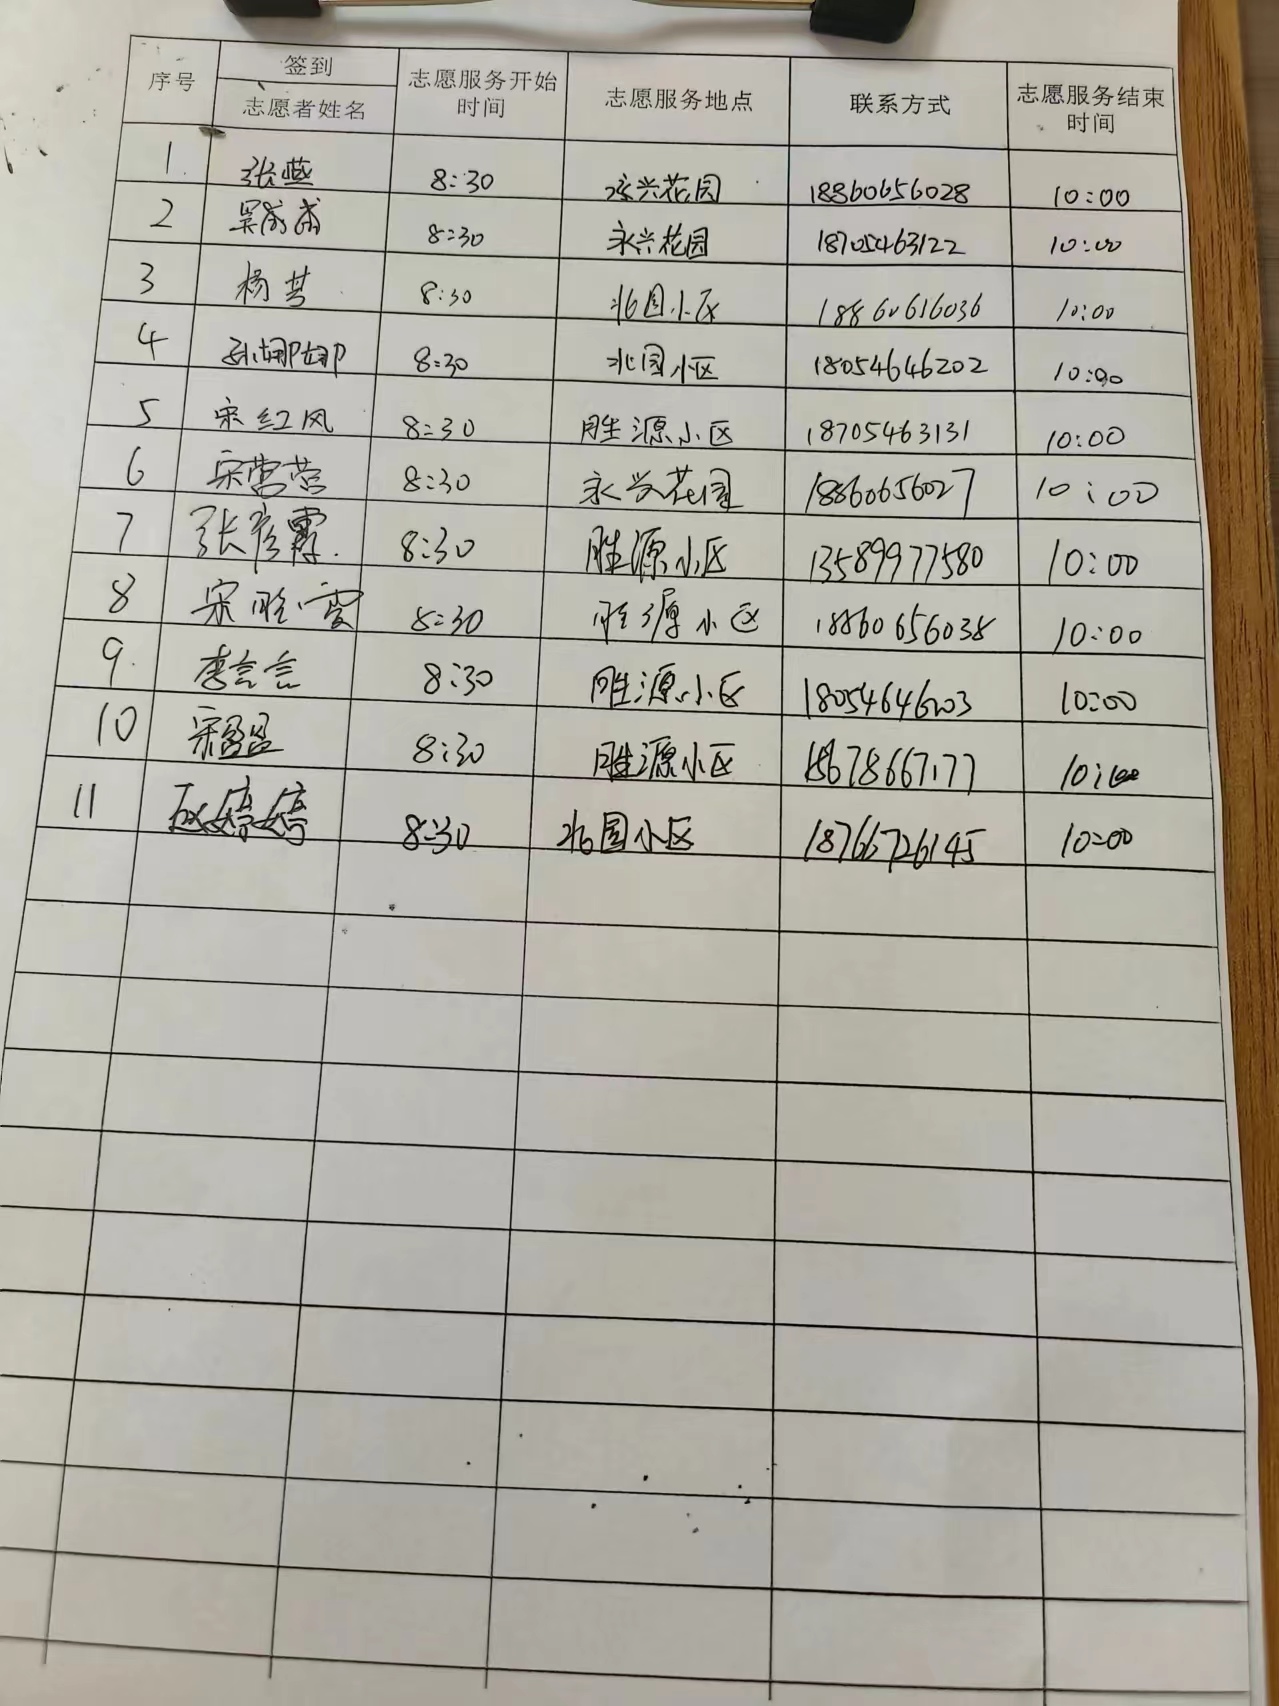 序号 签到 志愿者姓名 志愿服务开始时间 志愿服务地点 联系方式 志愿服务结束时间
1 张燕 8:30 永兴花园 18860656028 10:00
2 8:30 永兴花园 18705463122 10:00
3 杨芸 8:30 北园小区 18860616036 10:00
4 孙娜娜 8:30 北园小区 18054646202 10:00
5 宋红风 8:30 胜源小区 18705463131 10:00
6 宋营营 8:30 永兴花园 18860656027 10:00
7 张彦霞 8:30 胜源小区 13589977580 10:00
8 宋胜霞 8:30 胜源小区 18860656038 10:00
9 李言言 8:30 胜源小区 18054646203 10:00
10 宋盈盈 8:30 胜源小区 18678667177 10:00
11 赵婷婷 8:30 北园小区 18766726145 10:00